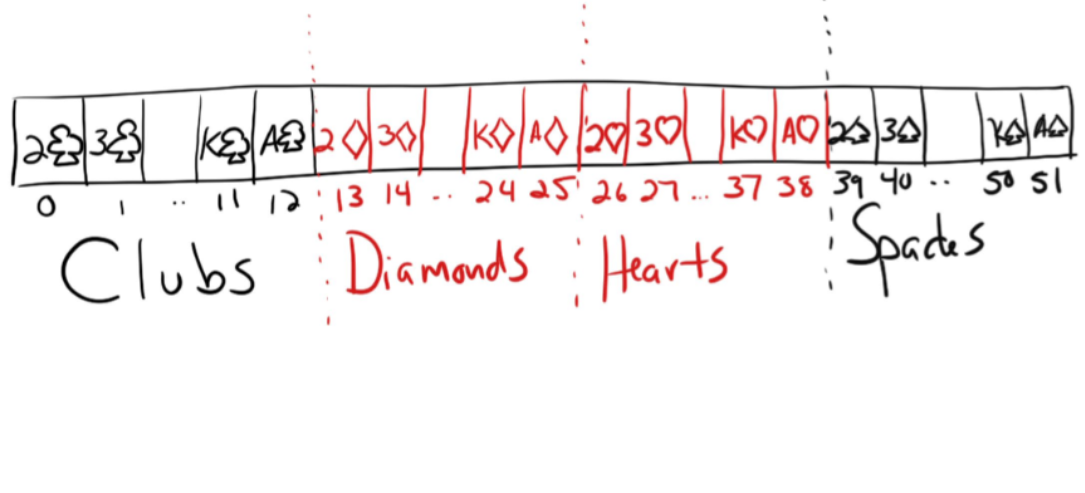 2♧ 3♧ K♧ A♧ 2♢ 3♢ K♢ A♢ 2♡ 3♡ K♡ A♡ 2♤ 3♤ K♤ A♤
0 1 .. 11 12 13 14 .. 24 25 26 27 ... 37 38 39 40 .. 50 51
Clubs Diamonds Hearts Spades